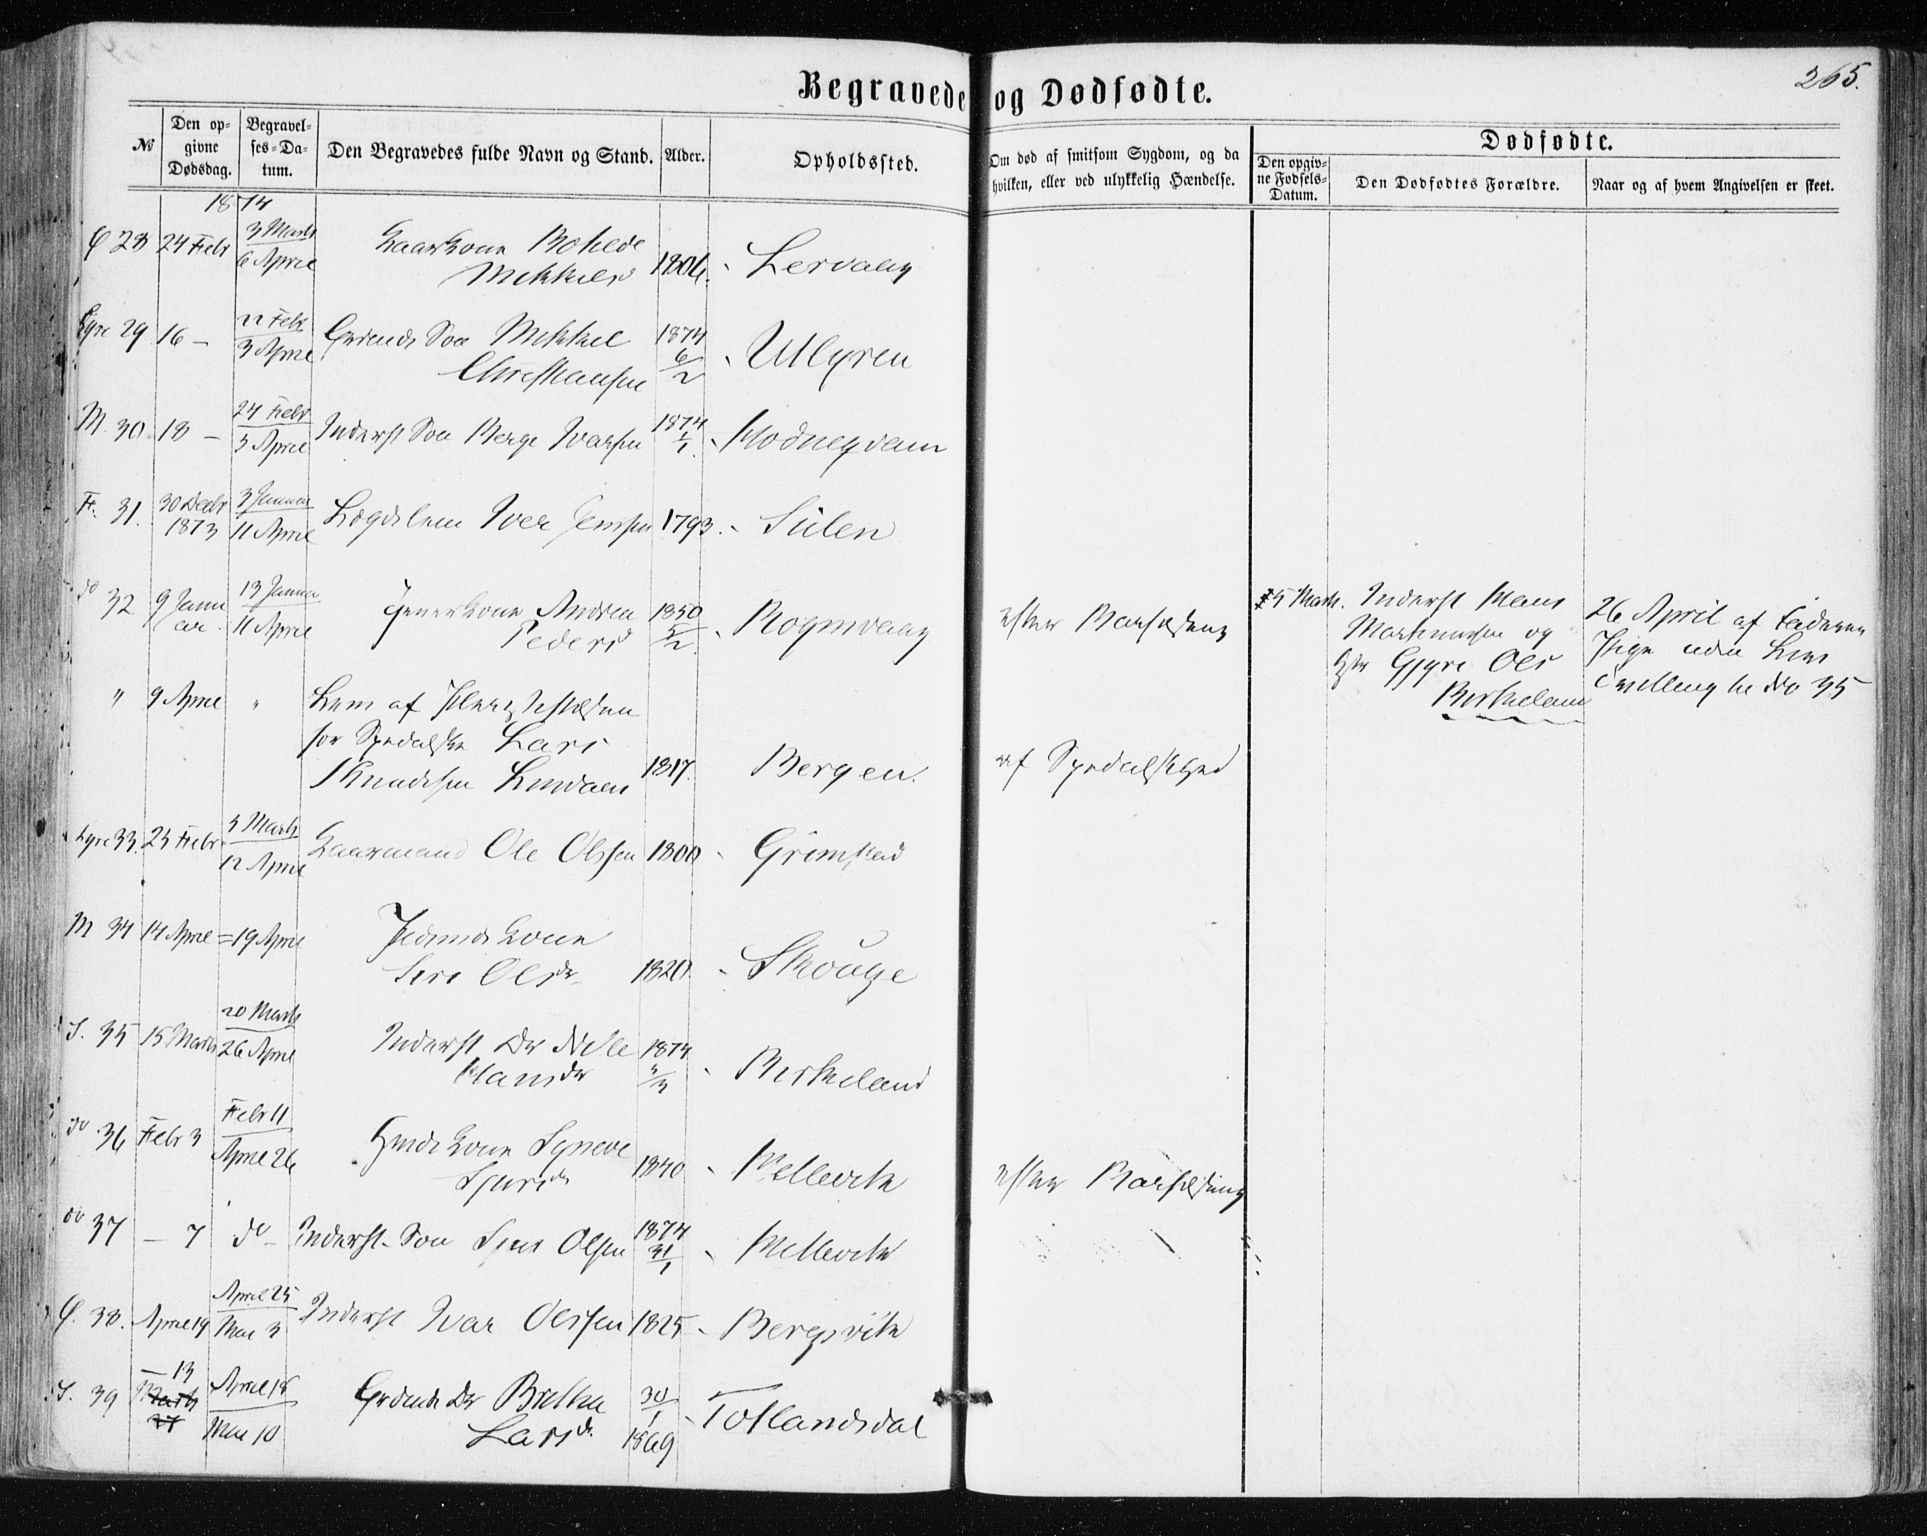 265.
Begravede og Dødfødte.
№
Den opgivne Dødsdag.
Begravelses-Datum.
Den Begravedes fulde Navn og Stand.
Alder.
Opholdssted.
Om død af smitsom Sygdom, og da hvilken, eller ved ulykkelig Hændelse.
Dødfødte.
Den opgivne Fødsels-Datum.
Den Dødfødtes Forældre.
Naar og af hvem Angivelsen er skeet.
1874
28 24 Febr 3 Marts Kaarkone
6 April Mikkelsd 1806. Lervaag
29 16 – 22 Febr Søn Mikkel 1874
3 April Christiansen 6/2
M 30 18 – 24 Febr Inderst Søn Berge Ivarsen 1874
3 April 1/1 Hodnegvam
F. 31. 30 Decbr 3 Januar Lægdslem Iver Jensen 1793. Sülen
1873 11 April
do 32 9 Januar 13 Januar kone Andrea 1850
11 April Pedersd 5/2 Rognvaag efter Barselseng
15 Marts. Inderst Hans
Martinussen og
Gjyri Olsd
Birkeland
26 April af Faderen
Pige uden Liv
Tvilling til No 35
" 9 April " Lem af Pleiestiftelsen
for Spedalske Lars
Knudsen Lindaas 1817. Bergen. af Spedalskhed
Lyre 33. 23 Febr 3 Marts Kaarmand Ole Olssen 1800 Grimstad
12 April
M 34 14 April = 19 April kone
Siri Olsdr 1820. Skouge
S. 35 15 Marts 20 Marts Inderst Dr 1874
26 April Hansdr /3 Birkeland
do 36 Febr 3 Febr 11 kone Synneve
April 26 Sjursdr 1840 Mellevik efter Barselseng
do 37 – 7 do – Inderst-Søn Sjur Olsen 1874
31/1 Mellevik
38. April 19 April 25 Inderst Ivar Olssen 1825 Bergsvik
Mai 3
S. 39 13 April 18 Dr Britha 30/1
Marts Mai 10 Larsdr 1869 Totlandsdal